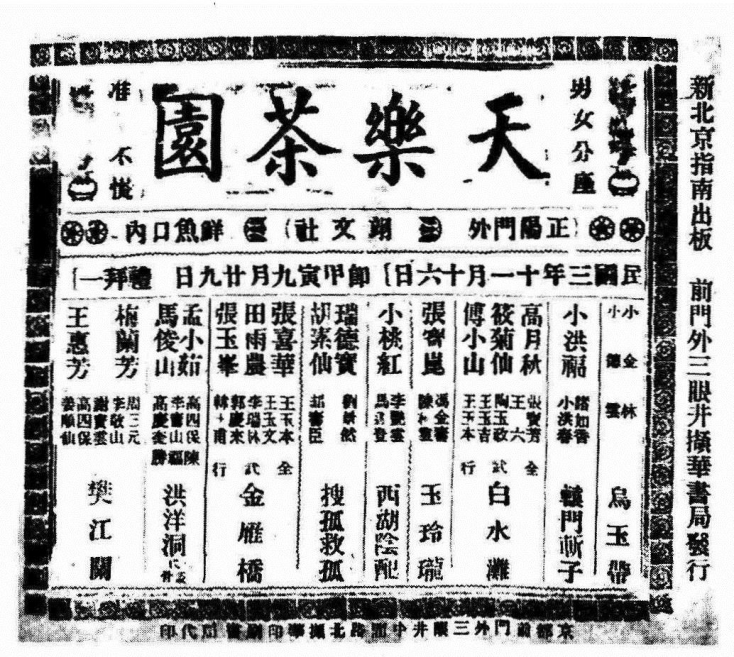 新北京指南出板 前門外三眼井擷華書局發行
男女分座
天樂茶園
准不慌
正陽門外 翊文社 鮮魚口內
民國三年十一月十六日 即甲寅九月廿九日 禮拜一
小金林
小德雲
烏玉帶
小洪福
諸如香
小洪春
轅門斬子
高月秋
筱菊仙
傅小山
張寶芳
王六
陶玉政
王玉吉
王玉本
全武行
白水灘
張寶崑
馮金壽
玉玲瓏
小桃紅
李艷雲
西湖陰配
瑞德寶
胡素仙
劉景然
郝壽臣
搜孤救孤
張喜華
田雨農
張玉峯
王玉本
王玉文
李瑞林
郭慶來
全武行
金雁橋
孟小茹
馬俊山
高四保
李壽山
高慶奎
洪洋洞
梅蘭芳
王惠芳
周三元
李敬山
謝寶雲
高四保
姜順仙
樊江關
京都前門外三眼井中間路北擷華印刷書局代印